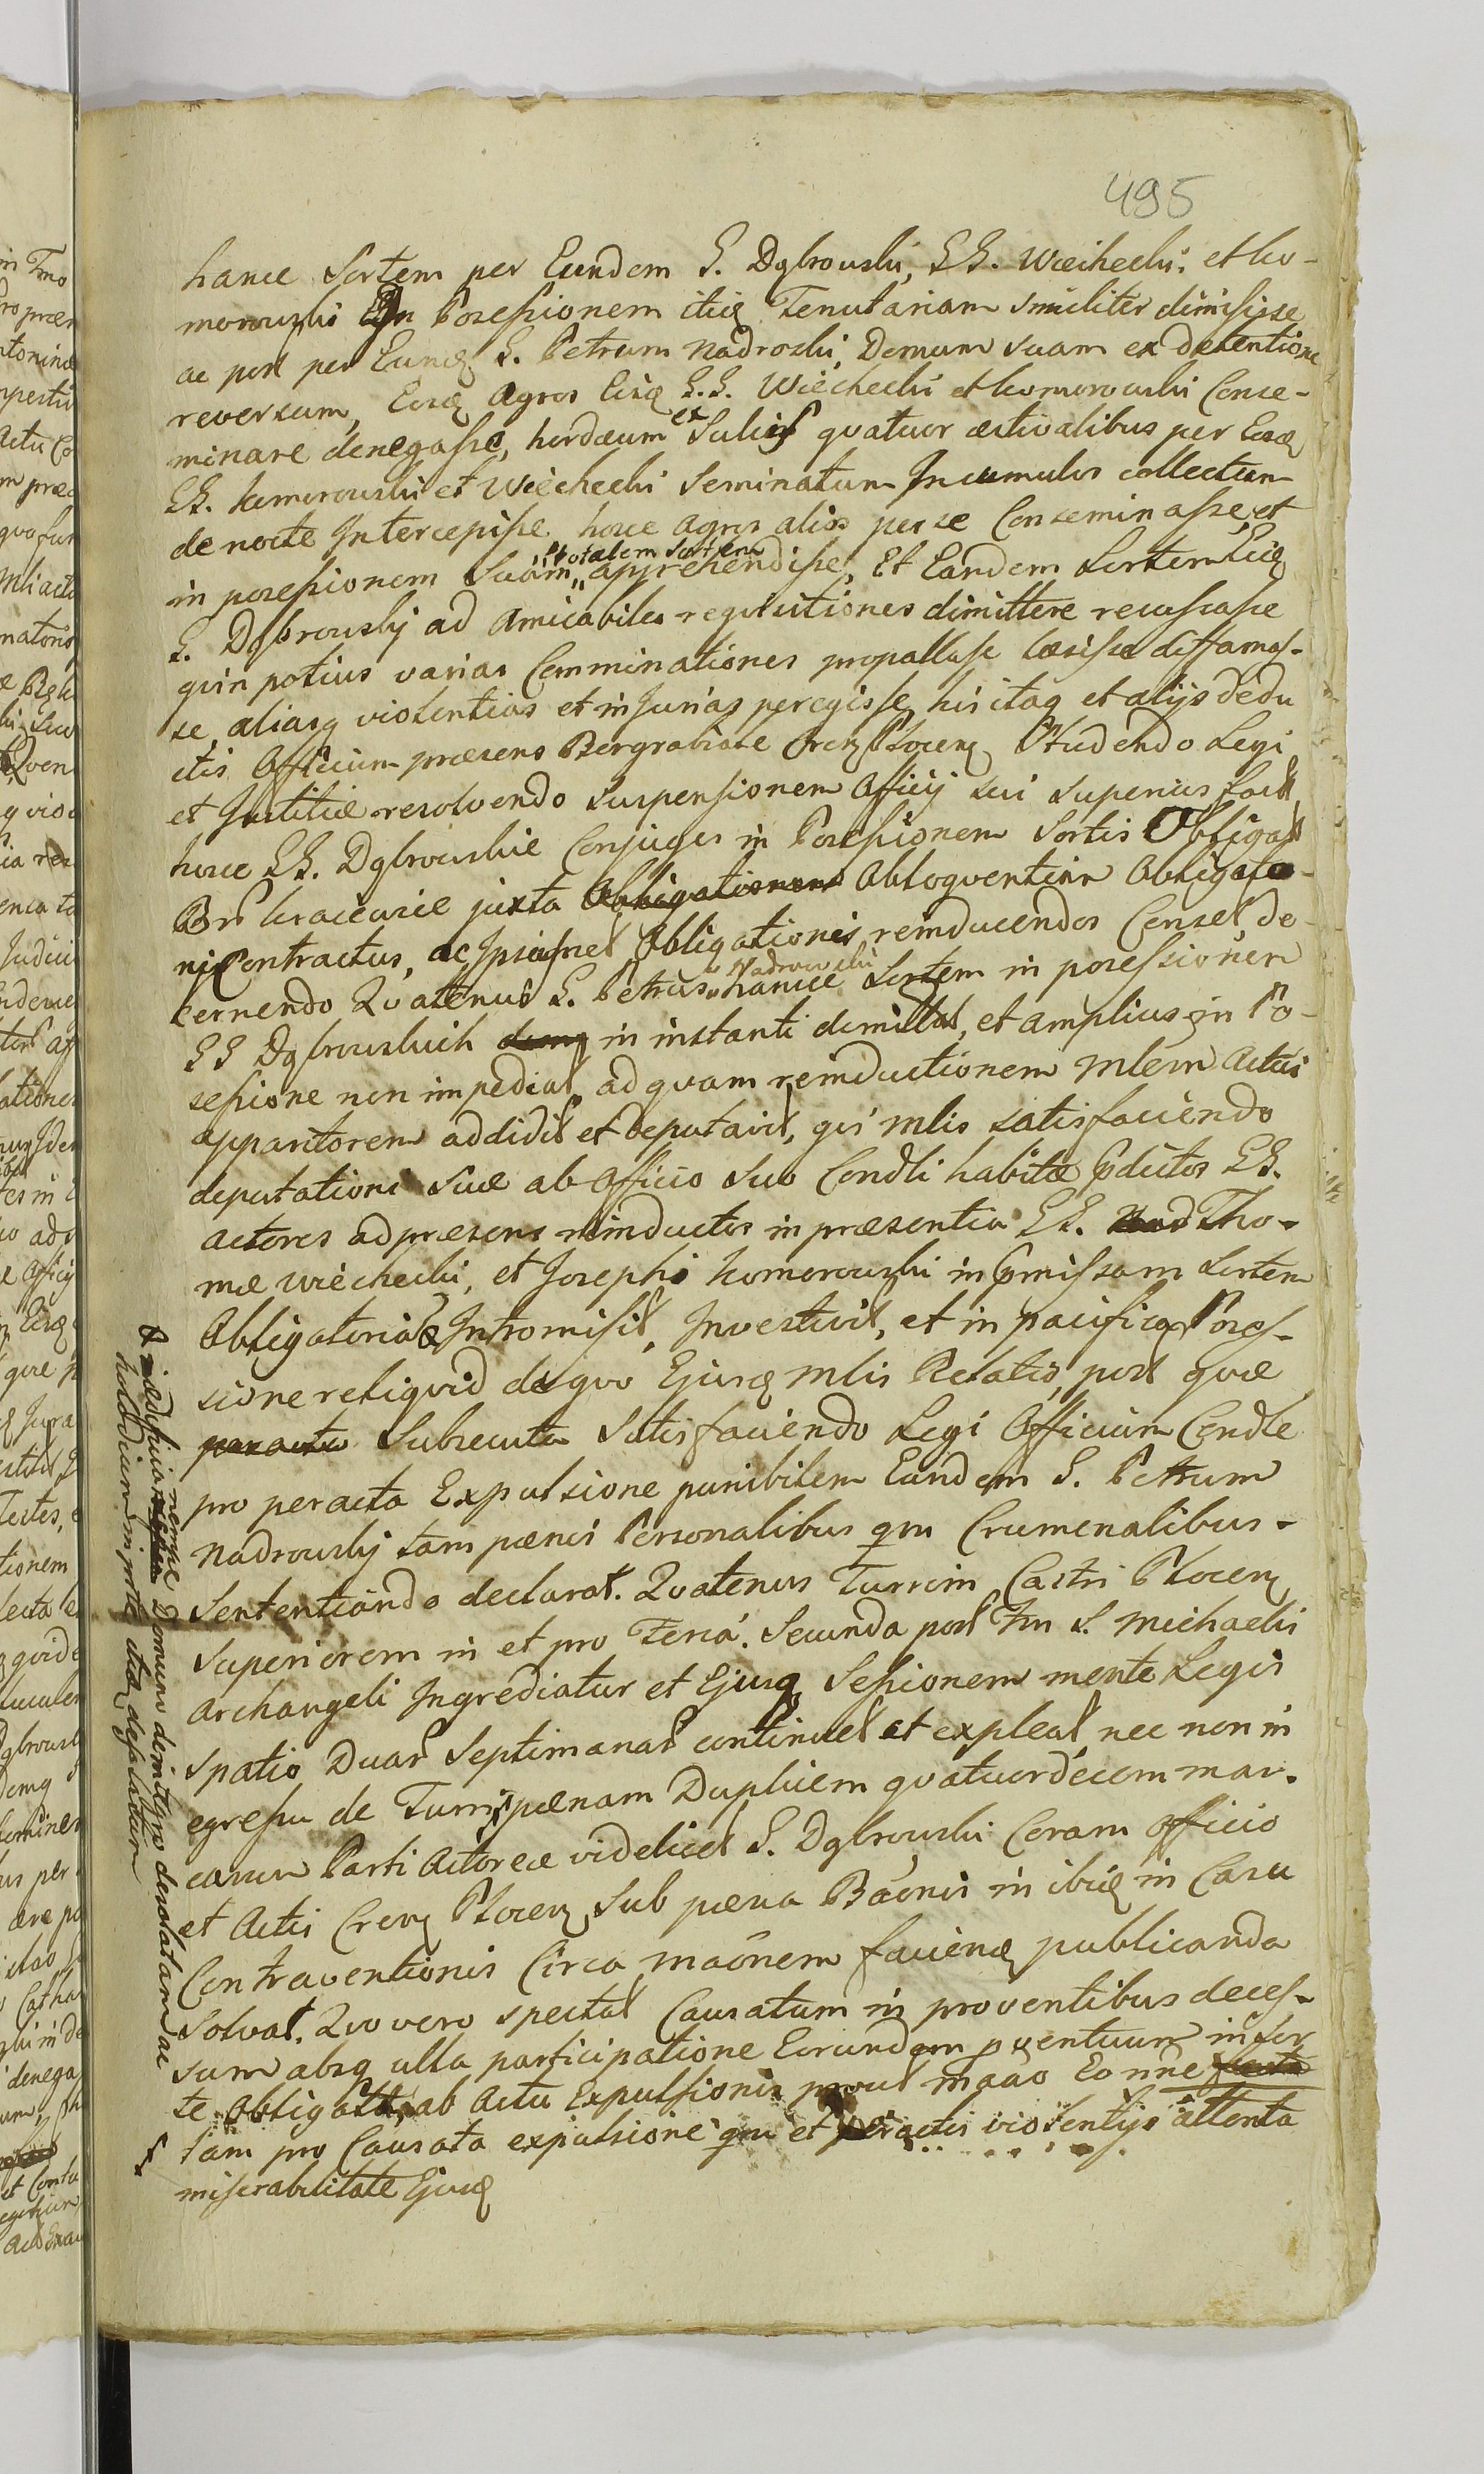 495
hance Sortem per Eundem G. Dąbrowski, GG. Wiecheclii et Ko-
morowski in Possessionem itiq Tenutariam similiter dimisisse
ac post per Eunq G. Petrum Nadroski, Domum suam ex detentione
reversum, Eosq Agros Eisq G.G. Wiechecki et Komorowski Conse-
minare denegasse, hordæum ex Sulcis quatuor æstivalibus per Eosq
GG. Komorowski et Wiechecki Seminatum In cumulos collectum
de nocte Intercepisse, hosce agros alios per se Conseminasse, et
in possessionem Suam totalem Sortem apprehendisse, Et Eandem Sortem Eiq
G. Dąbrowskij ad Amicabiles requisitiones dimittere recusasse
quin potius varias Comminationes propallasse læsisse diffamas-
se, aliasq violentias et injurias peregisse, his itaq et alijs dedu
ctis Officium præsens Burgrabiale Crenȝ Plocenȝ Studendo Legi
et Justitiæ resolvendo Suspensionem Officij sui superius fact
hosce GG. Dąbrowskie Conjuges in Possessionem Sortis Obligatt
juxta Obligationem Obloquentiam Obligato-
rij Contractus, ac Ipsiusmet Obligationis reinducendos Censet, de-
cernendo Quatenus G. Petrus Nadrowski hancce Sortem in possessionem
GG Dąbrowskich in instanti dimittat, et amplius in Po-
sessione non impediat, ad quam reinductionem Mlem Actus
apparitorem addidit et deputavit, qui Mlis satisfaciendo
deputationi suæ ab Officio suo Condli habitæ pdictos GG.
actores ad præsens reinductos in præsentia GG. Nad Tho-
mæ Wiechecki, et Josephi Komorowski in pmissam Sortem
Obligatoriã Intromisit, Investivit, et in pacifica Poses-
sione reliquid de quo Ejusq Mlis Relatio, post quæ
peracta Subsecuta Satisfaciendo Legi Officium Condle
pro peracta Expulsione punibilem Eundem G. Petrum
Nadrowskij tam pænis Personalibus qm Crumenalibus
Sententiando declarat. Quatenus Turrim Castri Plocenȝ
Superiorem in et pro Feria Secunda post Ftm S. Michaelis
Archangeli Ingrediatur et Ejusq Sessionem mente Legis
spatio Duar Septimanar continuet et expleat, nec non in
egressu de Turri pænam Duplicem quatuordecem mar-
carum Parti Actoreæ videlicet G. Dąbrowski Coram Officio
et Actis Crenȝ Plocenȝ Sub pæna Baonis in ibiq in Casu
Contraventionis Circa maonem faciend publicanda
Solvat. Quo vero spectat Causatum in proventibus deces-
sum absq ulla participatione Eorundem pventuum in Sor
te Obligatt, ab Actu Expulsionis prout Eo nne facta
tam pro Causata expulsione qm et peractis violentijs attenta
miserabilitate Ejusq
nempe Domum de integro desolatam ac